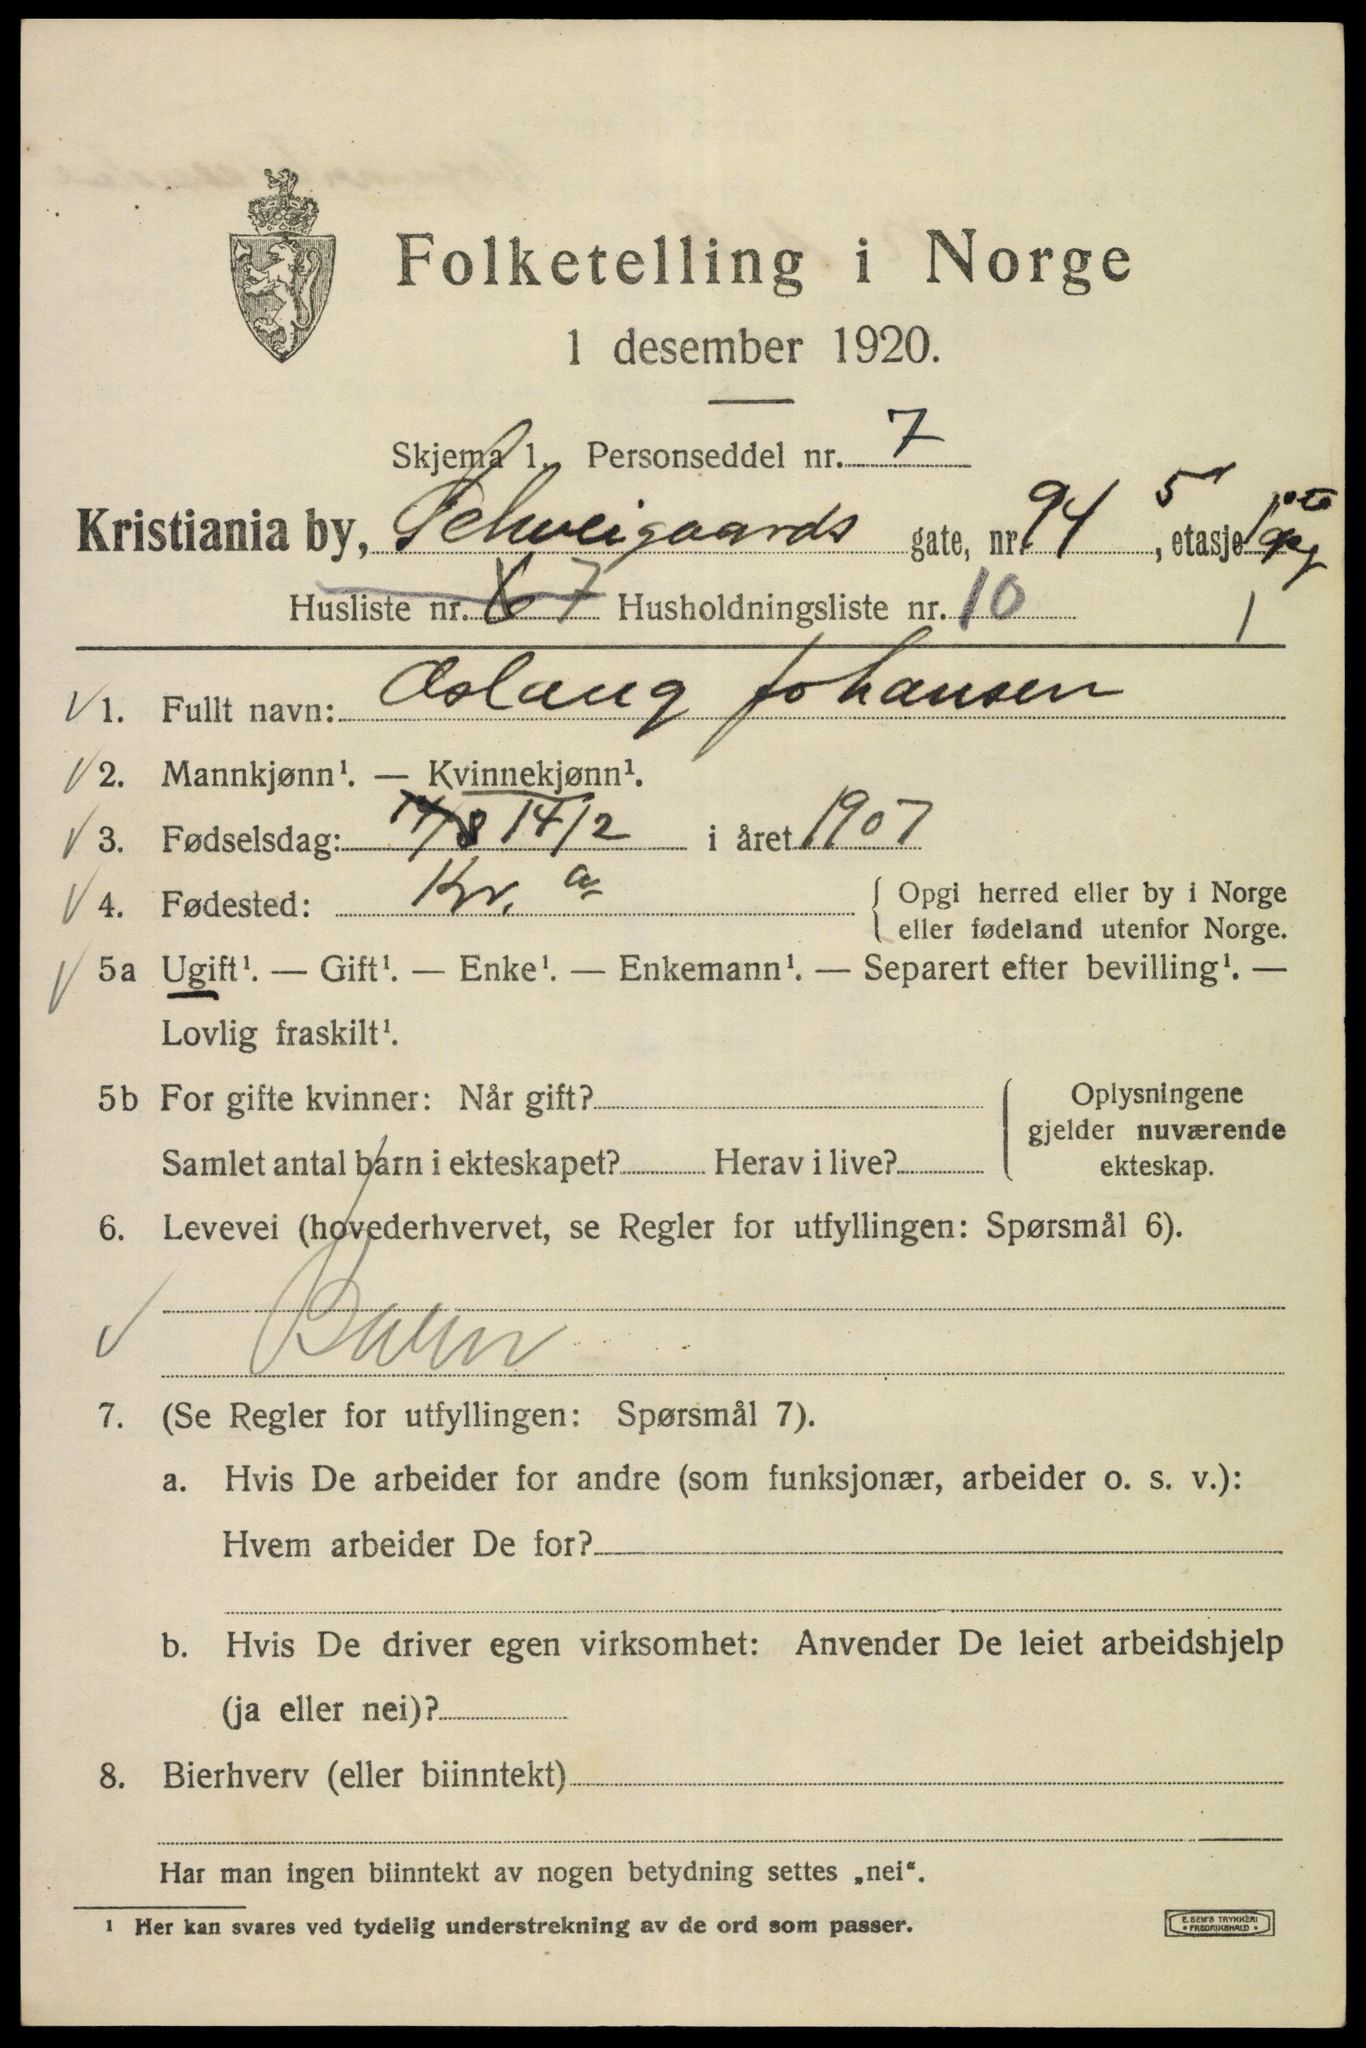 Folketelling i Norge
1 desember 1920.
Skjema 1. Personseddel nr. 7
Kristiania by, Schweigaards gate, nr. 94 5, etasje
Husliste nr. 7 Husholdningsliste nr. 10 1
1. Fullt navn: Aslaug Johansen
2. Mannkjønn¹. — Kvinnekjønn¹.
3. Fødselsdag: 14/8 14/2 i året 1907
4. Fødested: Kr. a { Opgi herred eller by i Norge
eller fødeland utenfor Norge.
5a Ugift¹. — Gift¹. — Enke¹. — Enkemann¹. — Separert efter bevilling¹. —
Lovlig fraskilt¹.
5b For gifte kvinner: Når gift? Oplysningene
gjelder nuværende
Samlet antal barn i ekteskapet? Herav i live? ekteskap.
6. Levevei (hovederhvervet, se Regler for utfyllingen: Spørsmål 6).
Barn
7. (Se Regler for utfyllingen: Spørsmål 7).
a. Hvis De arbeider for andre (som funksjonær, arbeider o. s. v.):
Hvem arbeider De for?
b. Hvis De driver egen virksomhet: Anvender De leiet arbeidshjelp
(ja eller nei)?
8. Bierhverv (eller biinntekt)
Har man ingen biinntekt av nogen betydning settes „nei“.
¹ Her kan svares ved tydelig understrekning av de ord som passer.
E. SEM'S TRYKKERI
FREDRIKSHALD